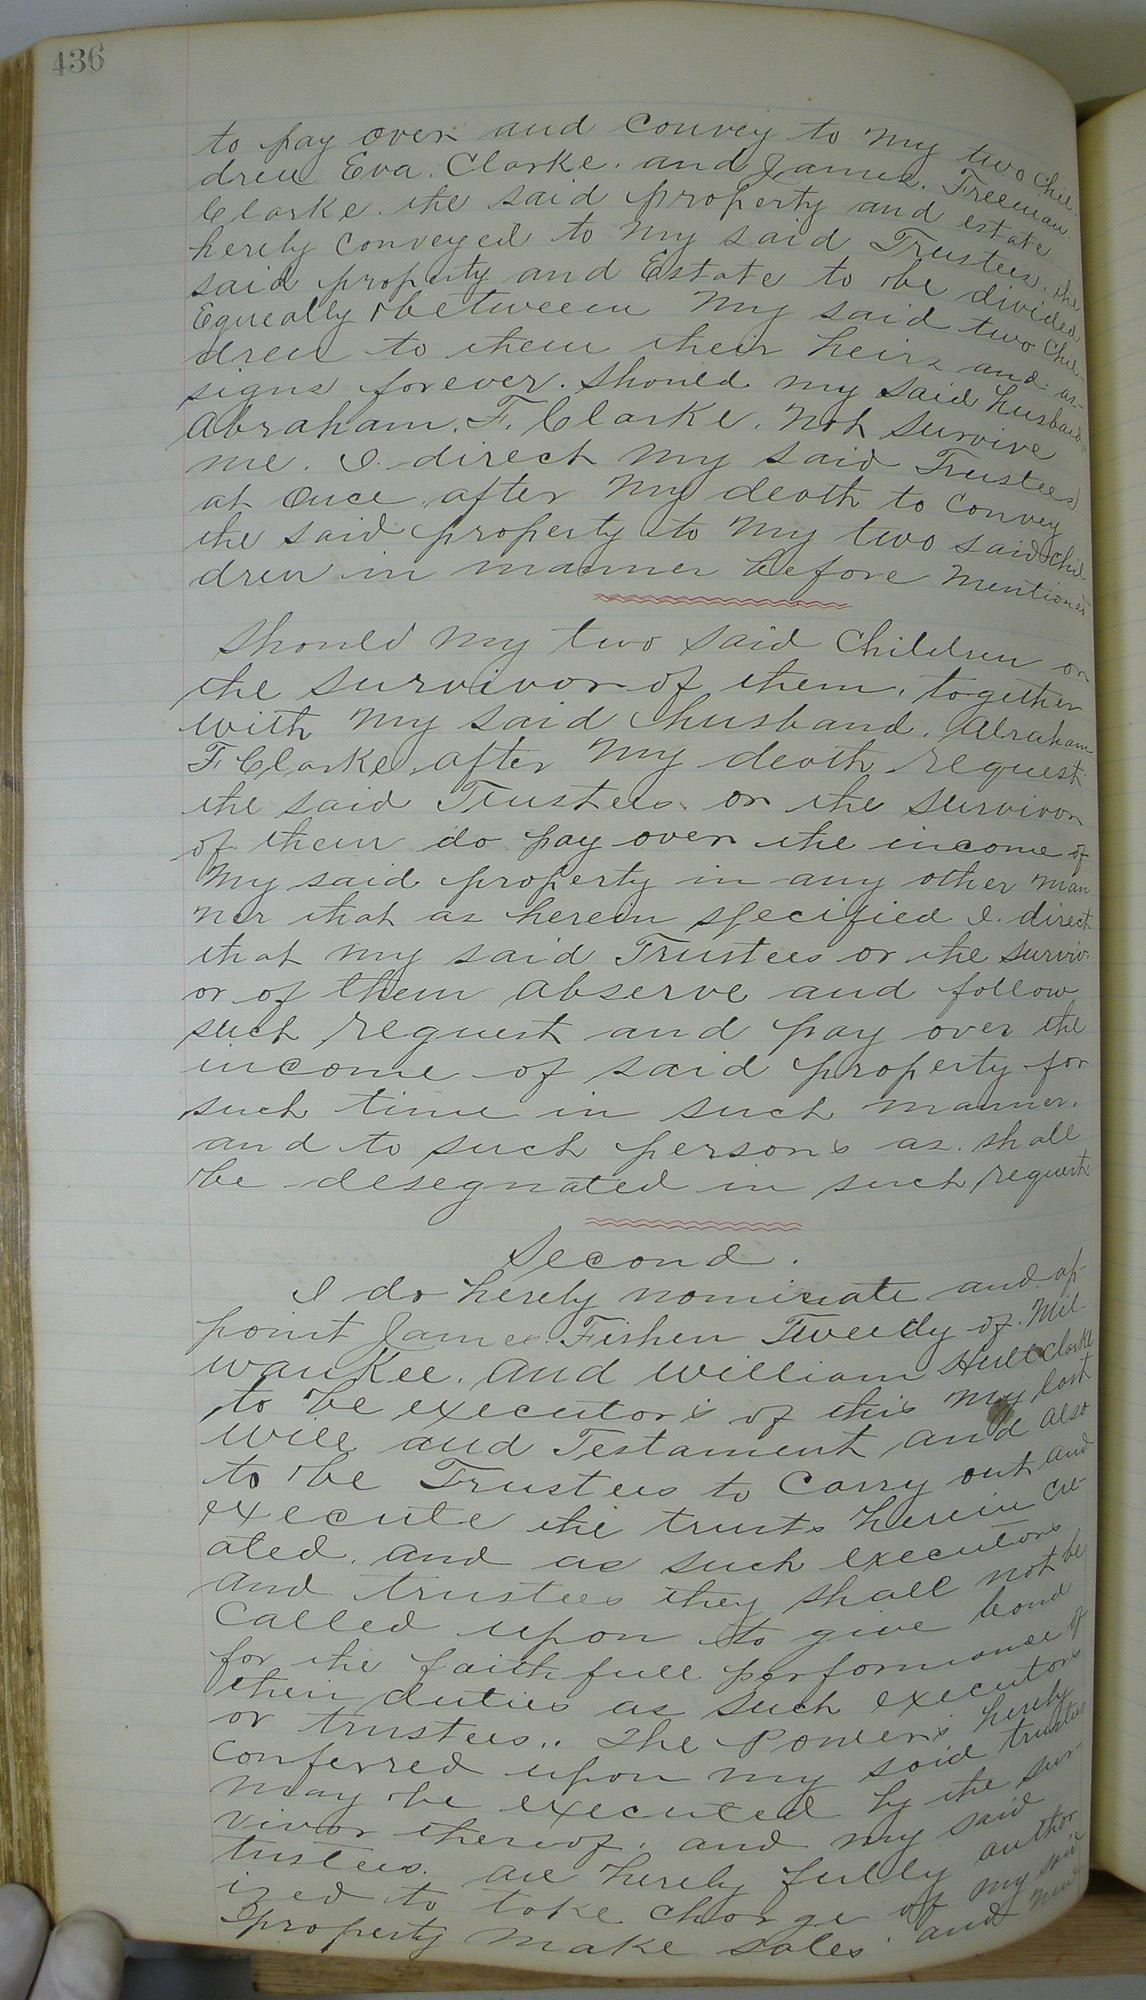 436
to pay over and Convey to my two Chil-
dren Eva. Clarke. and James. Freeman.
Clarke. the said property and estate
hereby Conveyed to my said Trustees. the
said property and Estate to be divided
Equeally between my said two Chil-
dren to them their heirs and as-
signs forever. Should my Said husband
Abraham. F. Clarke. Not Survive
me. I. direct my said Trustees
at Once after my death to Convey
the said property to my two said Chil-
dren in manner before mentioned
Should my two said Children or
the Survivor of them, together
with my said husband. Abraham
F. Clarke, after my death request
the said Trustees. or the Survivor
of them do pay over the income of
my said property in any other man
ner that as herein specified I. direct
that my said Trustees or the surviv-
or of them observe and follow
such request and pay over the
income of said property for
such time in such manner.
and to such persons as. shall
be desegnated in such request
Second.
I do hereby nominate and ap-
point James Fisher Tweedy of. Mil-
waukee. and William Hull Clarke
to be executors of this my last
will and Testament and also
to be Trustees to Carry out and
execute the trusts herein cre-
ated. and as such executors
and trustees they shall not be
Called upon to give bond
for the faithfull performance of
their duties as such executors
or trustees.. The Powers hereby
conferred upon my said trustees
may be executed by the sur-
vivor thereof. and my said
trustees. are hereby fully author
ized to take charge off my said
property make sales and